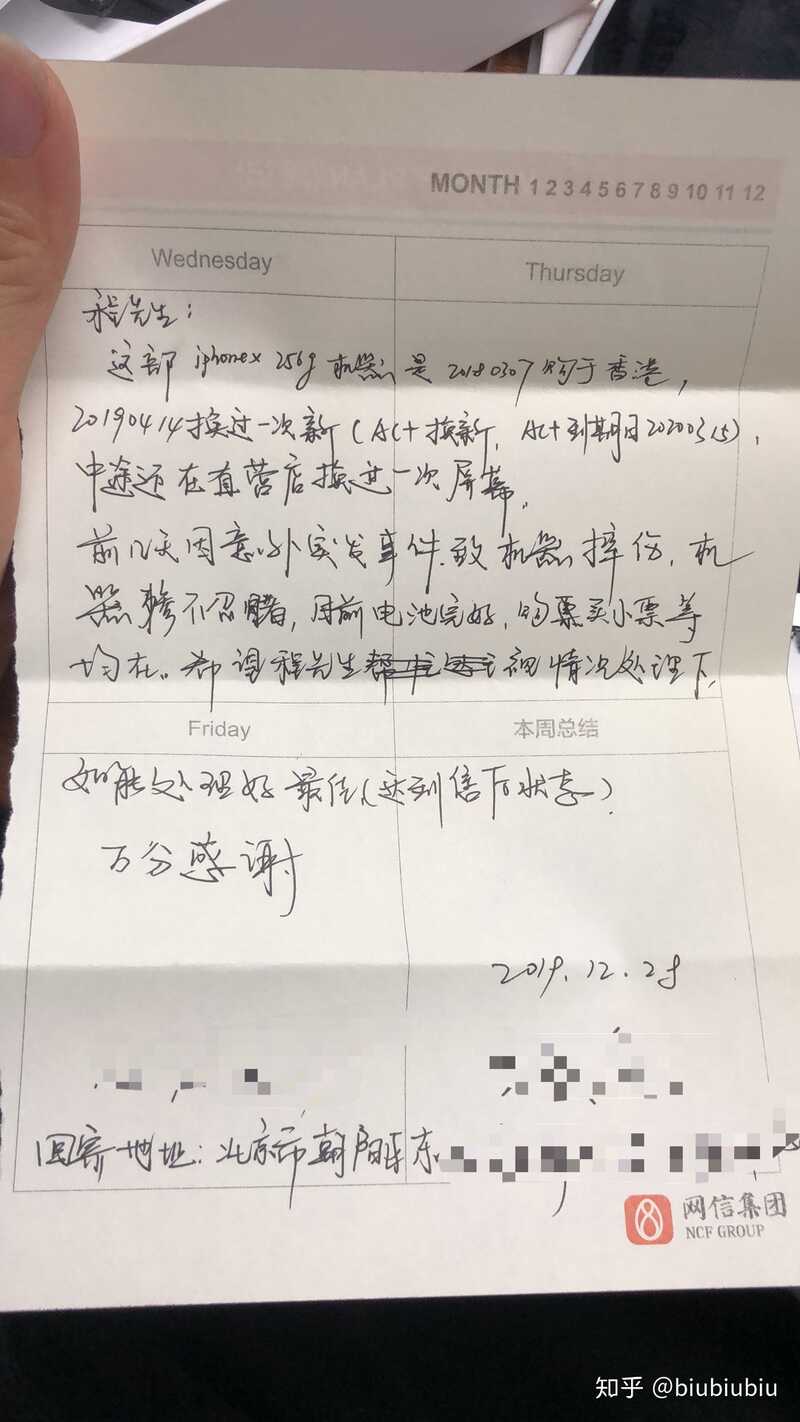 MONTH 1 2 3 4 5 6 7 8 9 10 11 12
Wednesday
Thursday
程先生：
这部 iphonex 256g 机器是 20180307 购于香港，
20190414换过一次新（AC+换新，AC+到期日20200315），
中途还在直营店换过一次屏幕。
前几天因意外突发事件，致机器摔伤，机
器惨不忍睹，目前电池完好，购买小票等
均在。希望程先生视情况处理下，
Friday
本周总结
如能处理好最佳（达到信下状态）
万分感谢
2019.12.28
回寄地址：北京市朝阳区东
网信集团
NCF GROUP
知乎 @biubiubiu